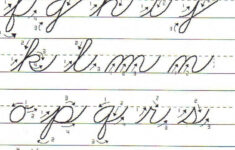 f g h i j
k l m n
o p q r s